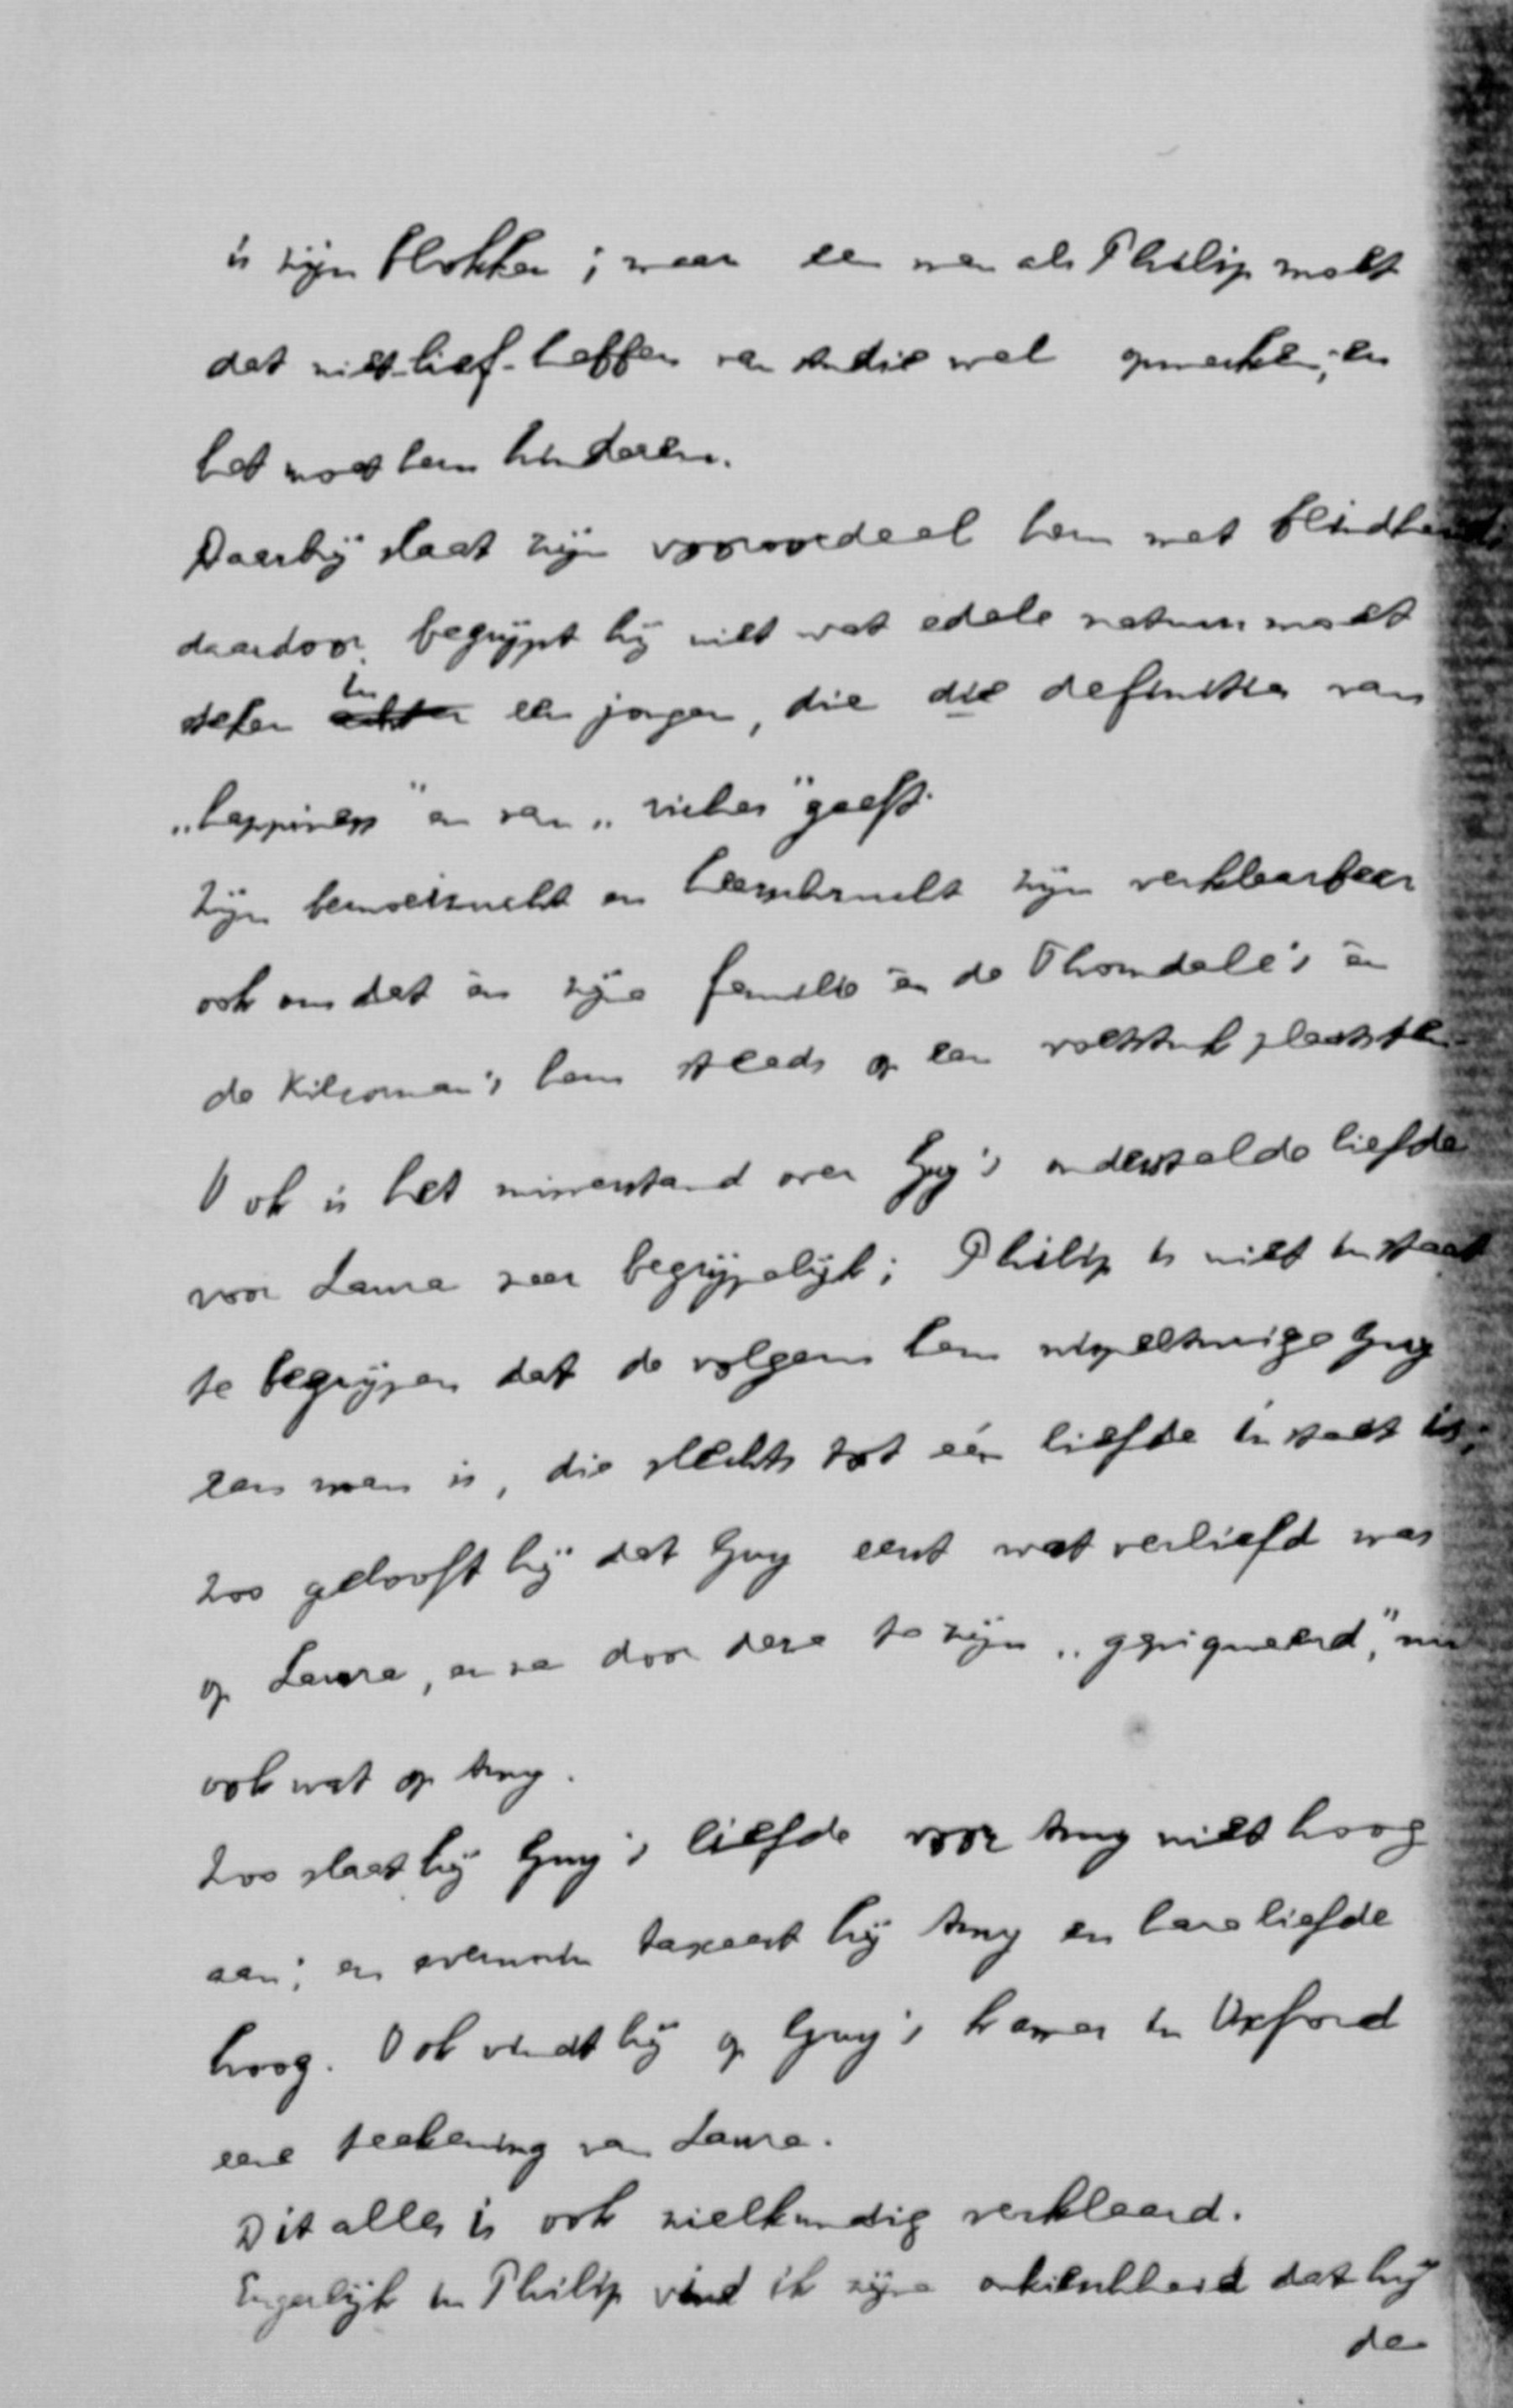 is zijn blokken; maar een man als Philip moet
dat niet-lief-hebben van studie wel opmerken; en
het moet hem hinderen.
Daarbij slaat zijn vooroordeel hem met blindheid
daardoor begrijpt hij niet wat edele natuur moet
steken in een jongen, die die definitie van
„happiness" en van „riches" geeft.
Zijn bemoeizucht en heerschzucht zijn verklaarbaar
ook omdat èn zijne familie èn de Thorndale's èn
de Kilcoran's hem steeds op een voetstuk plaatsten
Ook is het misverstand over Guy's onderstelde liefde
voor Laura zeer begrijpelijk; Philip is niet in staat
te begrijpen dat de volgens hem wispelturige Guy
een man is, die slechts tot één liefde in staat is;
zoo gelooft hij dat Guy eerst wat verliefd was
op Laura, en na door deze te zijn „gepiqueerd," nu
ook wat op Amy.
Zoo slaat hij Guy's liefde voor Amy niet hoog
aan; en evenmin taxeert hij Amy en hare liefde
hoog. Ook vindt hij op Guy's kamer in Oxford
eene teekening van Laura.
Dit alles is ook zielkundig verklaard.
Ergerlijk in Philip vind ik zijne onkieschheid dat hij
de